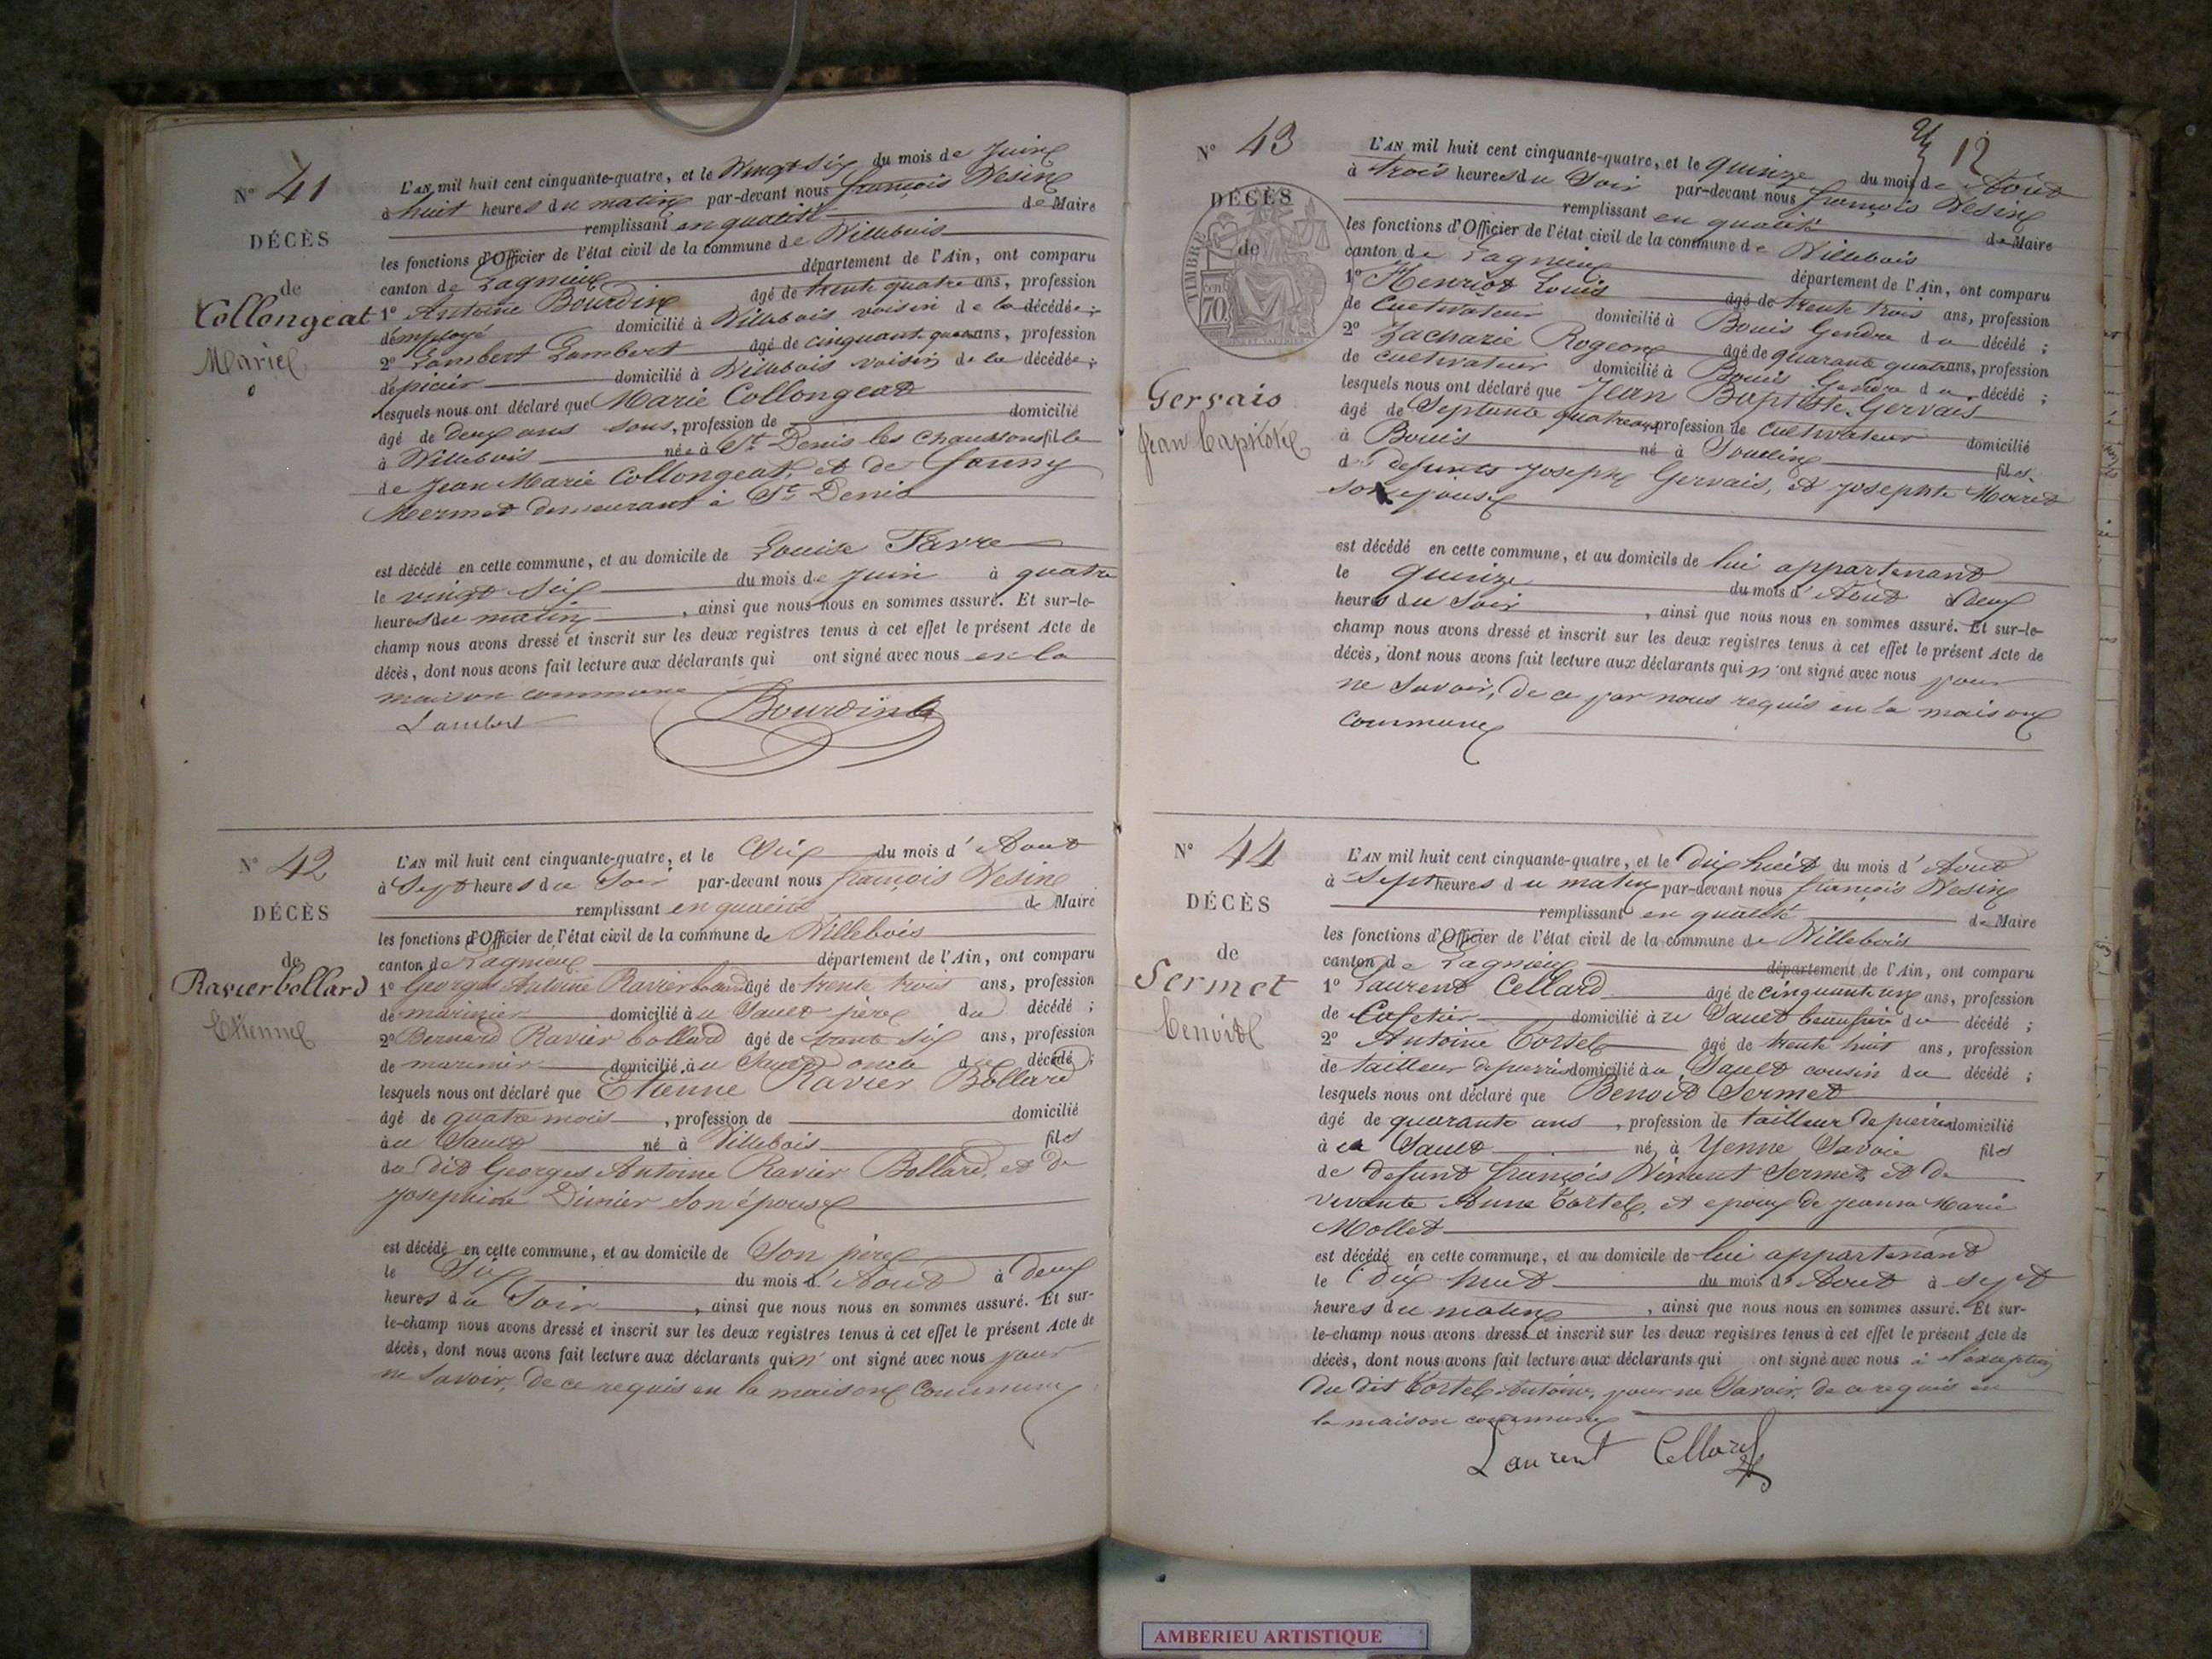 N° 41
DÉCÈS
de
Collongeat
Marie
L'AN mil huit cent cinquante-quatre, et le Vingt Six du mois de Juin
à huit heures du matin par-devant nous françois Vesin
remplissant en qualité de Maire
les fonctions d'Officier de l'état civil de la commune de Villebois
canton de Lagnieu département de l'Ain, ont comparu
1° Antoine Bourdin âgé de trente quatre ans, profession
d'employé domicilié à Villebois voisin de la décédée ;
2° Lambert Lambert âgé de cinquante quatre ans, profession
d'épicier domicilié à Villebois voisin de la décédée ;
lesquels nous ont déclaré que Marie Collongeat
âgé de deux ans sans, profession de domicilié
à Villebois née à St Denis les Chaussons fille
de Jean Marie Collongeat, et de fanny
Mermet demeurant à St Denis
est décédé en cette commune, et au domicile de Louise Favre
le vingt Six du mois de Juin à quatre
heures du matin, ainsi que nous nous en sommes assuré. Et sur-le-
champ nous avons dressé et inscrit sur les deux registres tenus à cet effet le présent Acte de
décès, dont nous avons fait lecture aux déclarants qui ont signé avec nous en la
maison commune
Lambert Bourdin
N° 42
DÉCÈS
de
Ravierbollard
Etienne
L'AN mil huit cent cinquante-quatre, et le Six du mois d'Aout
à Sept heures du Soir par-devant nous françois Vesin
remplissant en qualité de Maire
les fonctions d'Officier de l'état civil de la commune de Villebois
canton de Lagnieu département de l'Ain, ont comparu
1° Georges Antoine Ravier bollard âgé de trente trois ans, profession
de marinier domicilié au Sault père du décédé ;
2° Bernard Ravier bollard âgé de trente Six ans, profession
de marinier domicilié au Sault oncle du décédé ;
lesquels nous ont déclaré que Etienne Ravier Bollard
âgé de quatre mois, profession de domicilié
au Sault né à Villebois fils
du dit Georges Antoine Ravier Bollard, et de
Josephine Dimier Son épouse
est décédé en cette commune, et au domicile de Son père
le Six du mois d'Aout à deux
heures du Soir, ainsi que nous nous en sommes assuré. Et sur-
le-champ nous avons dressé et inscrit sur les deux registres tenus à cet effet le présent Acte de
décès, dont nous avons fait lecture aux déclarants qui n'ont signé avec nous pour
ne Savoir, de ce requis en la maison Commune
12
N° 43
DÉCÈS
de
TIMBRE
70 cen
Gervais
Jean baptiste
L'AN mil huit cent cinquante-quatre, et le quinze du mois de Aout
à trois heures du Soir par-devant nous françois Vesin
remplissant en qualité de Maire
les fonctions d'Officier de l'état civil de la commune de Villebois
canton de Lagnieu département de l'Ain, ont comparu
1° Henriot Louis âgé de trente trois ans, profession
de Cultivateur domicilié à Bouis Gendre du décédé ;
2° Zacharie Rogeon âgé de quarante quatre ans, profession
de cultivateur domicilié à Bouis Gendre du décédé ;
lesquels nous ont déclaré que Jean Baptiste Gervais
âgé de Septante quatre ans profession de Cultivateur domicilié
à Bouis né à Soudin fils
de defunts Joseph Gervais, et Josephte Moiret
son epouse
est décédé en cette commune, et au domicile de lui appartenant
le quinze du mois d'Aout à deux
heures du Soir, ainsi que nous nous en sommes assuré. Et sur-le-
champ nous avons dressé et inscrit sur les deux registres tenus à cet effet le présent Acte de
décès, dont nous avons fait lecture aux déclarants qui n'ont signé avec nous pour
ne Savoir, de ce par nous requis en la maison
commune
N° 44
DÉCÈS
de
Sermet
benoit
L'AN mil huit cent cinquante-quatre, et le dix huit du mois d'Aout
à Sept heures du matin par-devant nous françois Vesin
remplissant en qualité de Maire
les fonctions d'Officier de l'état civil de la commune de Villebois
canton de Lagnieu département de l'Ain, ont comparu
1° Laurent Cellard âgé de cinquante un ans, profession
de Cafetier domicilié au Sault beaufrère du décédé ;
2° Antoine Tortel âgé de trente huit ans, profession
de tailleur de pierres domicilié au Sault cousin du décédé ;
lesquels nous ont déclaré que Benoit Sermet
âgé de quarante ans, profession de tailleur de pierres domicilié
au Sault né à Yenne Savoie fils
de defunt françois Vincent Sermet, et de
vivante Anne Tortel, et epoux de Jeanne Marie
Mollet
est décédé en cette commune, et au domicile de lui appartenant
le dix huit du mois d'Aout à sept
heures du matin, ainsi que nous nous en sommes assuré. Et sur-
le-champ nous avons dressé et inscrit sur les deux registres tenus à cet effet le présent Acte de
décès, dont nous avons fait lecture aux déclarants qui ont signé avec nous à l'exception
du dit Tortel Antoine, pour ne Savoir, de ce requis en
la maison commune
Laurent Cellard
AMBERIEU ARTISTIQUE